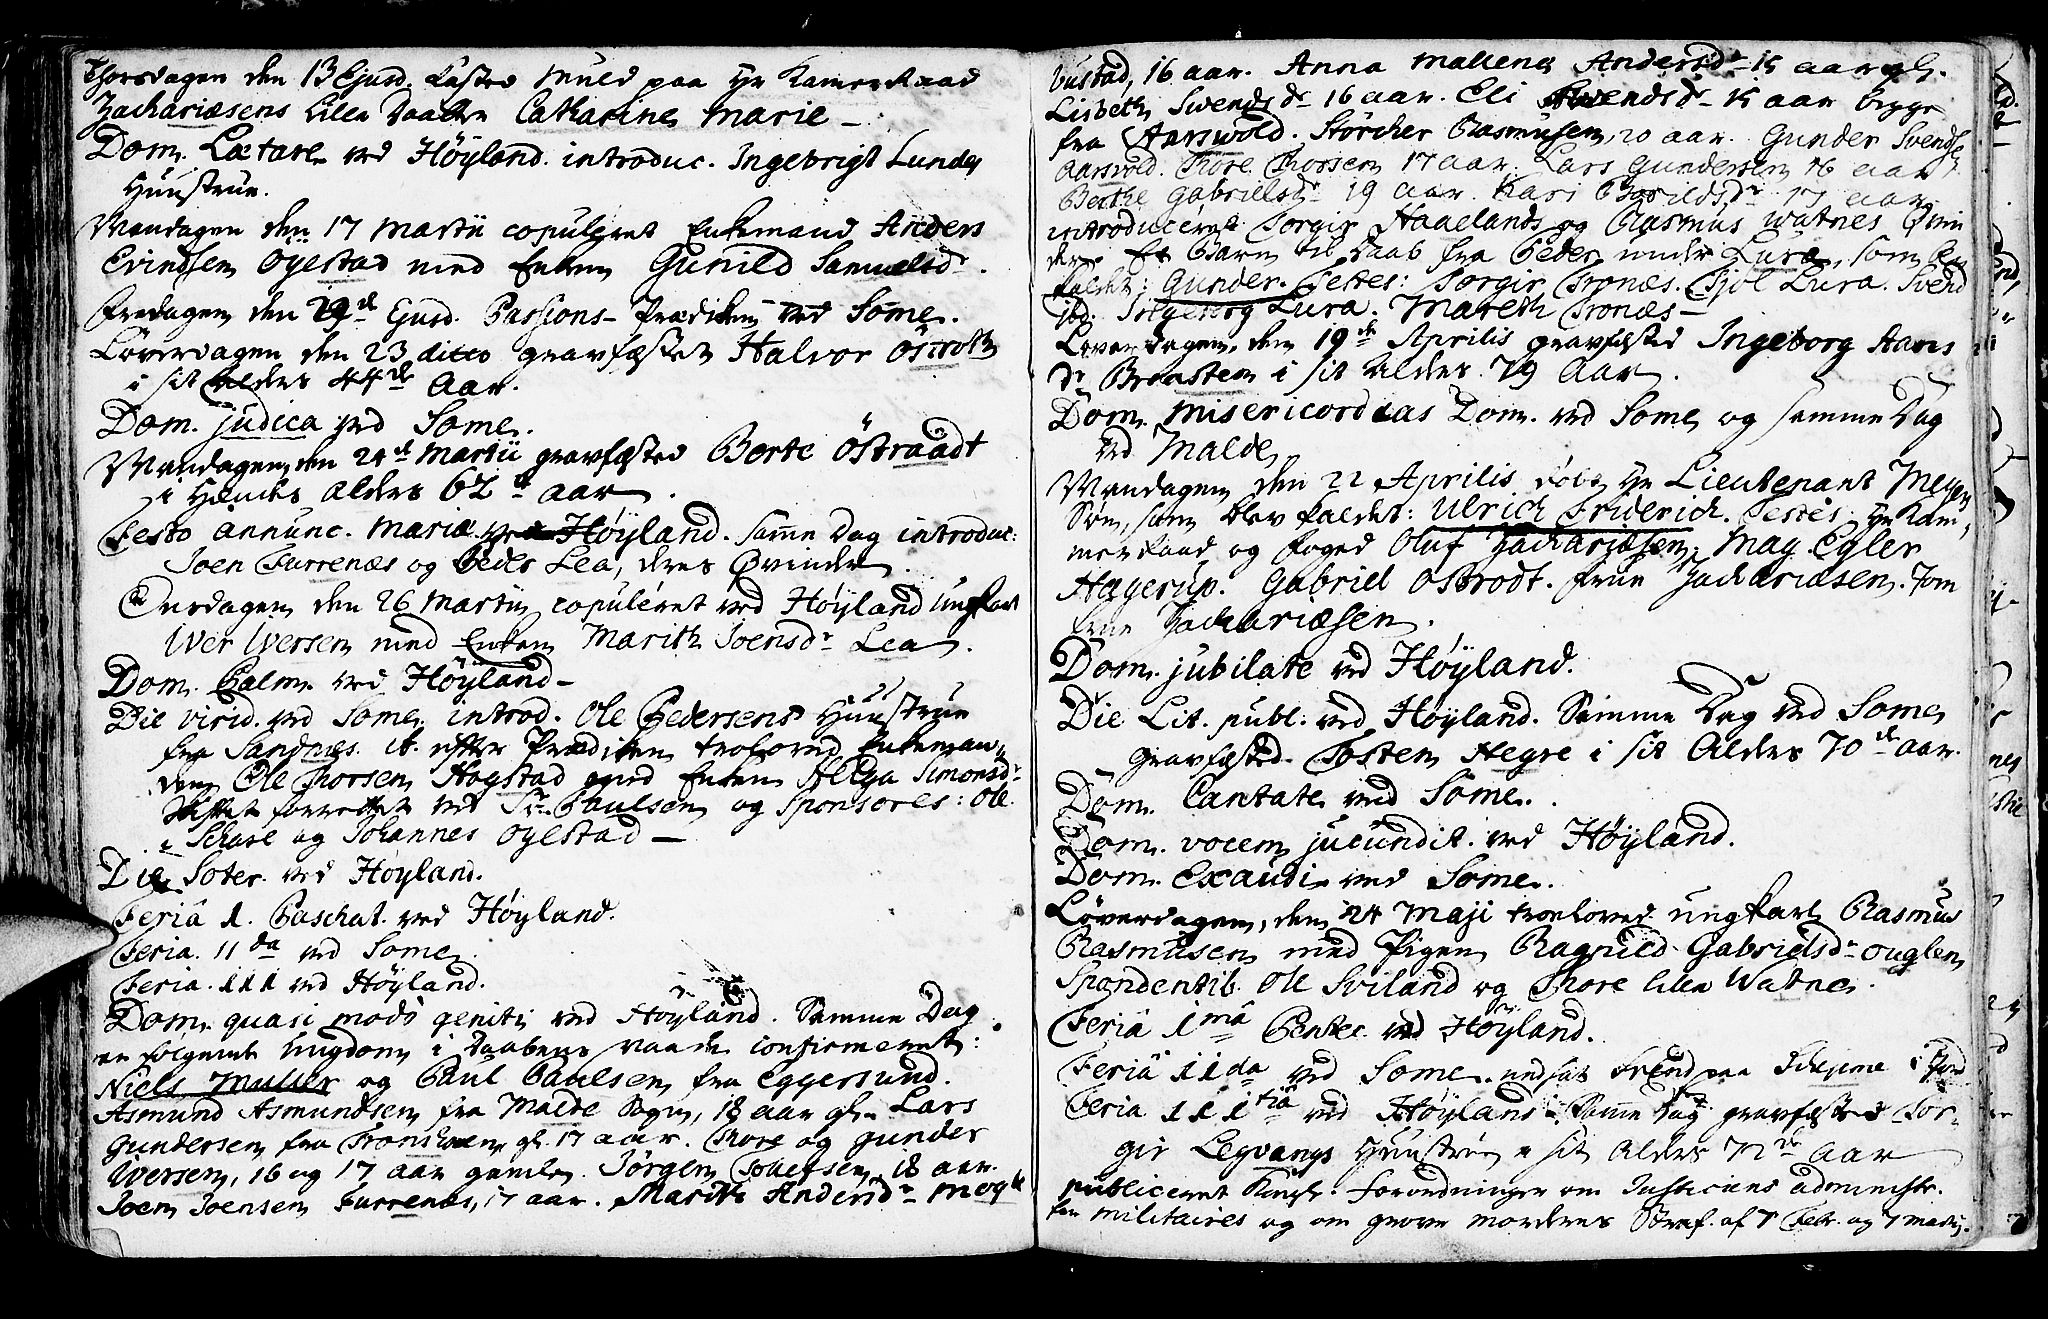 Thorsdagen den 13 Ejusd. kasted Muld paa Hr Kammerraad
Zachariæsens liden Daatter Catharine Marie –
Dom. Lætare ved Höyland. introduc. Ingebrigt Lundes
Huustrue.
Mandagen den 17 Martii copuleret Enkemand Anders
Evindsen Ogestad med Enken Gunild Samuelsdr.
Fredagen den Ejusd. Passions-Prædiken ved Some.
Löverdagen den 23 ditto gravfæstet Halvor
i sit Alders 44de Aar.
Dom. judica ved Some.
Mandagen den 24de Martii gravfæsted Berte Östraadt
i Hendes Alders 62de aar.
Festo annunc. Mariæ ved Höyland. samme Dag introduc:
Joen Furrenæs og Peder Lea, deres Qvinder.
Onsdagen den 26 Martii copuleret ved Höyland ungkarl
Iver Iversen med Enken Marith Joensdr Lea.
Dom. Palm. ved Höyland –
Die virid. ved Some introd. Ole Pedersens Huustrue
fra Sandnes. it. efter Prædiken troloved Enkeman-
den Ole Thorsen Hogstad med Enken Helga Simonsdr
Skiftet forrettet ved Sr. Paulsen og Sponsores: Ole
Schare og Johannes Ogestad –
Die Soter. ved Höyland.
Feria 1. Paschat. ved Höyland.
Feria. 11da ved Some.
Feria. 111 ved Höyland.
Dom. quasi modo geniti ved Höyland. Samme Dag
er fölgende Ungdom i Daabens Naade confirmeret:
Niels Muller og Paul Paulsen fra Eggersund.
Asmund Asmundsen fra Malde Sogn, 18 aar gl. Lars
Gundersen fra gl. 17 aar. Thore og Gunder
Iversen, 16 og 17 aar gamle. Jörgen 18 aar.
Joen Joensen Furrenæs, 17 aar. Marith Andersdr
16 aar. Anna Mallena Andersdr 15 aar gl.
Lisbeth Svendsdr 16 aar. Eli Svendsdr 15 aar begge
fra Aarsvold. Störcker Rasmusen, 20 aar. Gunder Svends.
Aarsvold. Tore Thorsen 17 aar. Lars Gundersen 16 aar
Berthe Gabrielsdr 19 aar. Kari 17 aar.
introduceret Torgir Haaelands og Rasmus Watnes Qvin
der. Et Barn til Daab fra Peder under Lura, som blev
kaldet: Gunder. Testes: Torgir Tronæs. Lura. Svend
ibd. Ingeborg Lura. Mareth Tronæs –
Löverdagen, den 19de Aprilis gravfæsted Ingeborg
dr Bronsten i sit Alders 79 Aar.
Dom. Misericordias Dom. ved Some og samme Dag
ved Malde
Mandagen den 22 Aprilis döbt Hr Lieutenant Meyers
Sön, som blev kaldet: Ulrich Friderich. Testes: Hr Kam-
merraad og foged Oluf Zachariæsen. Mag. Egler
Hagerup. Gabriel Ostrodt. frue Zachariæsen. Jom
frue Zachariæsen.
Dom. jubilate ved Höyland.
Die Lit. publ. ved Höyland. Samme Dag ved Some
gravfæsted Tosten Hegre i sit Alders 70de aar.
Dom. Cantate ved Some.
Dom. vocem jucundit. ved Höyland.
Dom. Exaudi ved Some.
Löverdagen, den 24 Maji troeloved ungkarl Rasmus
Rasmusen med Pigen Ragnild Gabrielsdr ouglen
Spondentib. Ole Sviland og Thore lille Watne.
Feriâ 1mâ Pentec. ved Höyland.
Feriâ 11da ved Some. indsat Trend paa i
Feria 111tiâ ved Höyland. Samme Dag gravfæsted Tor-
gir Legvangs Huustrue i sit Alders 72de Aar
publiceret Kongl. Forordninger om Justiciens administr.
for militaires og om grove morderes Straf. af 7 Febr. og 7 Martij.